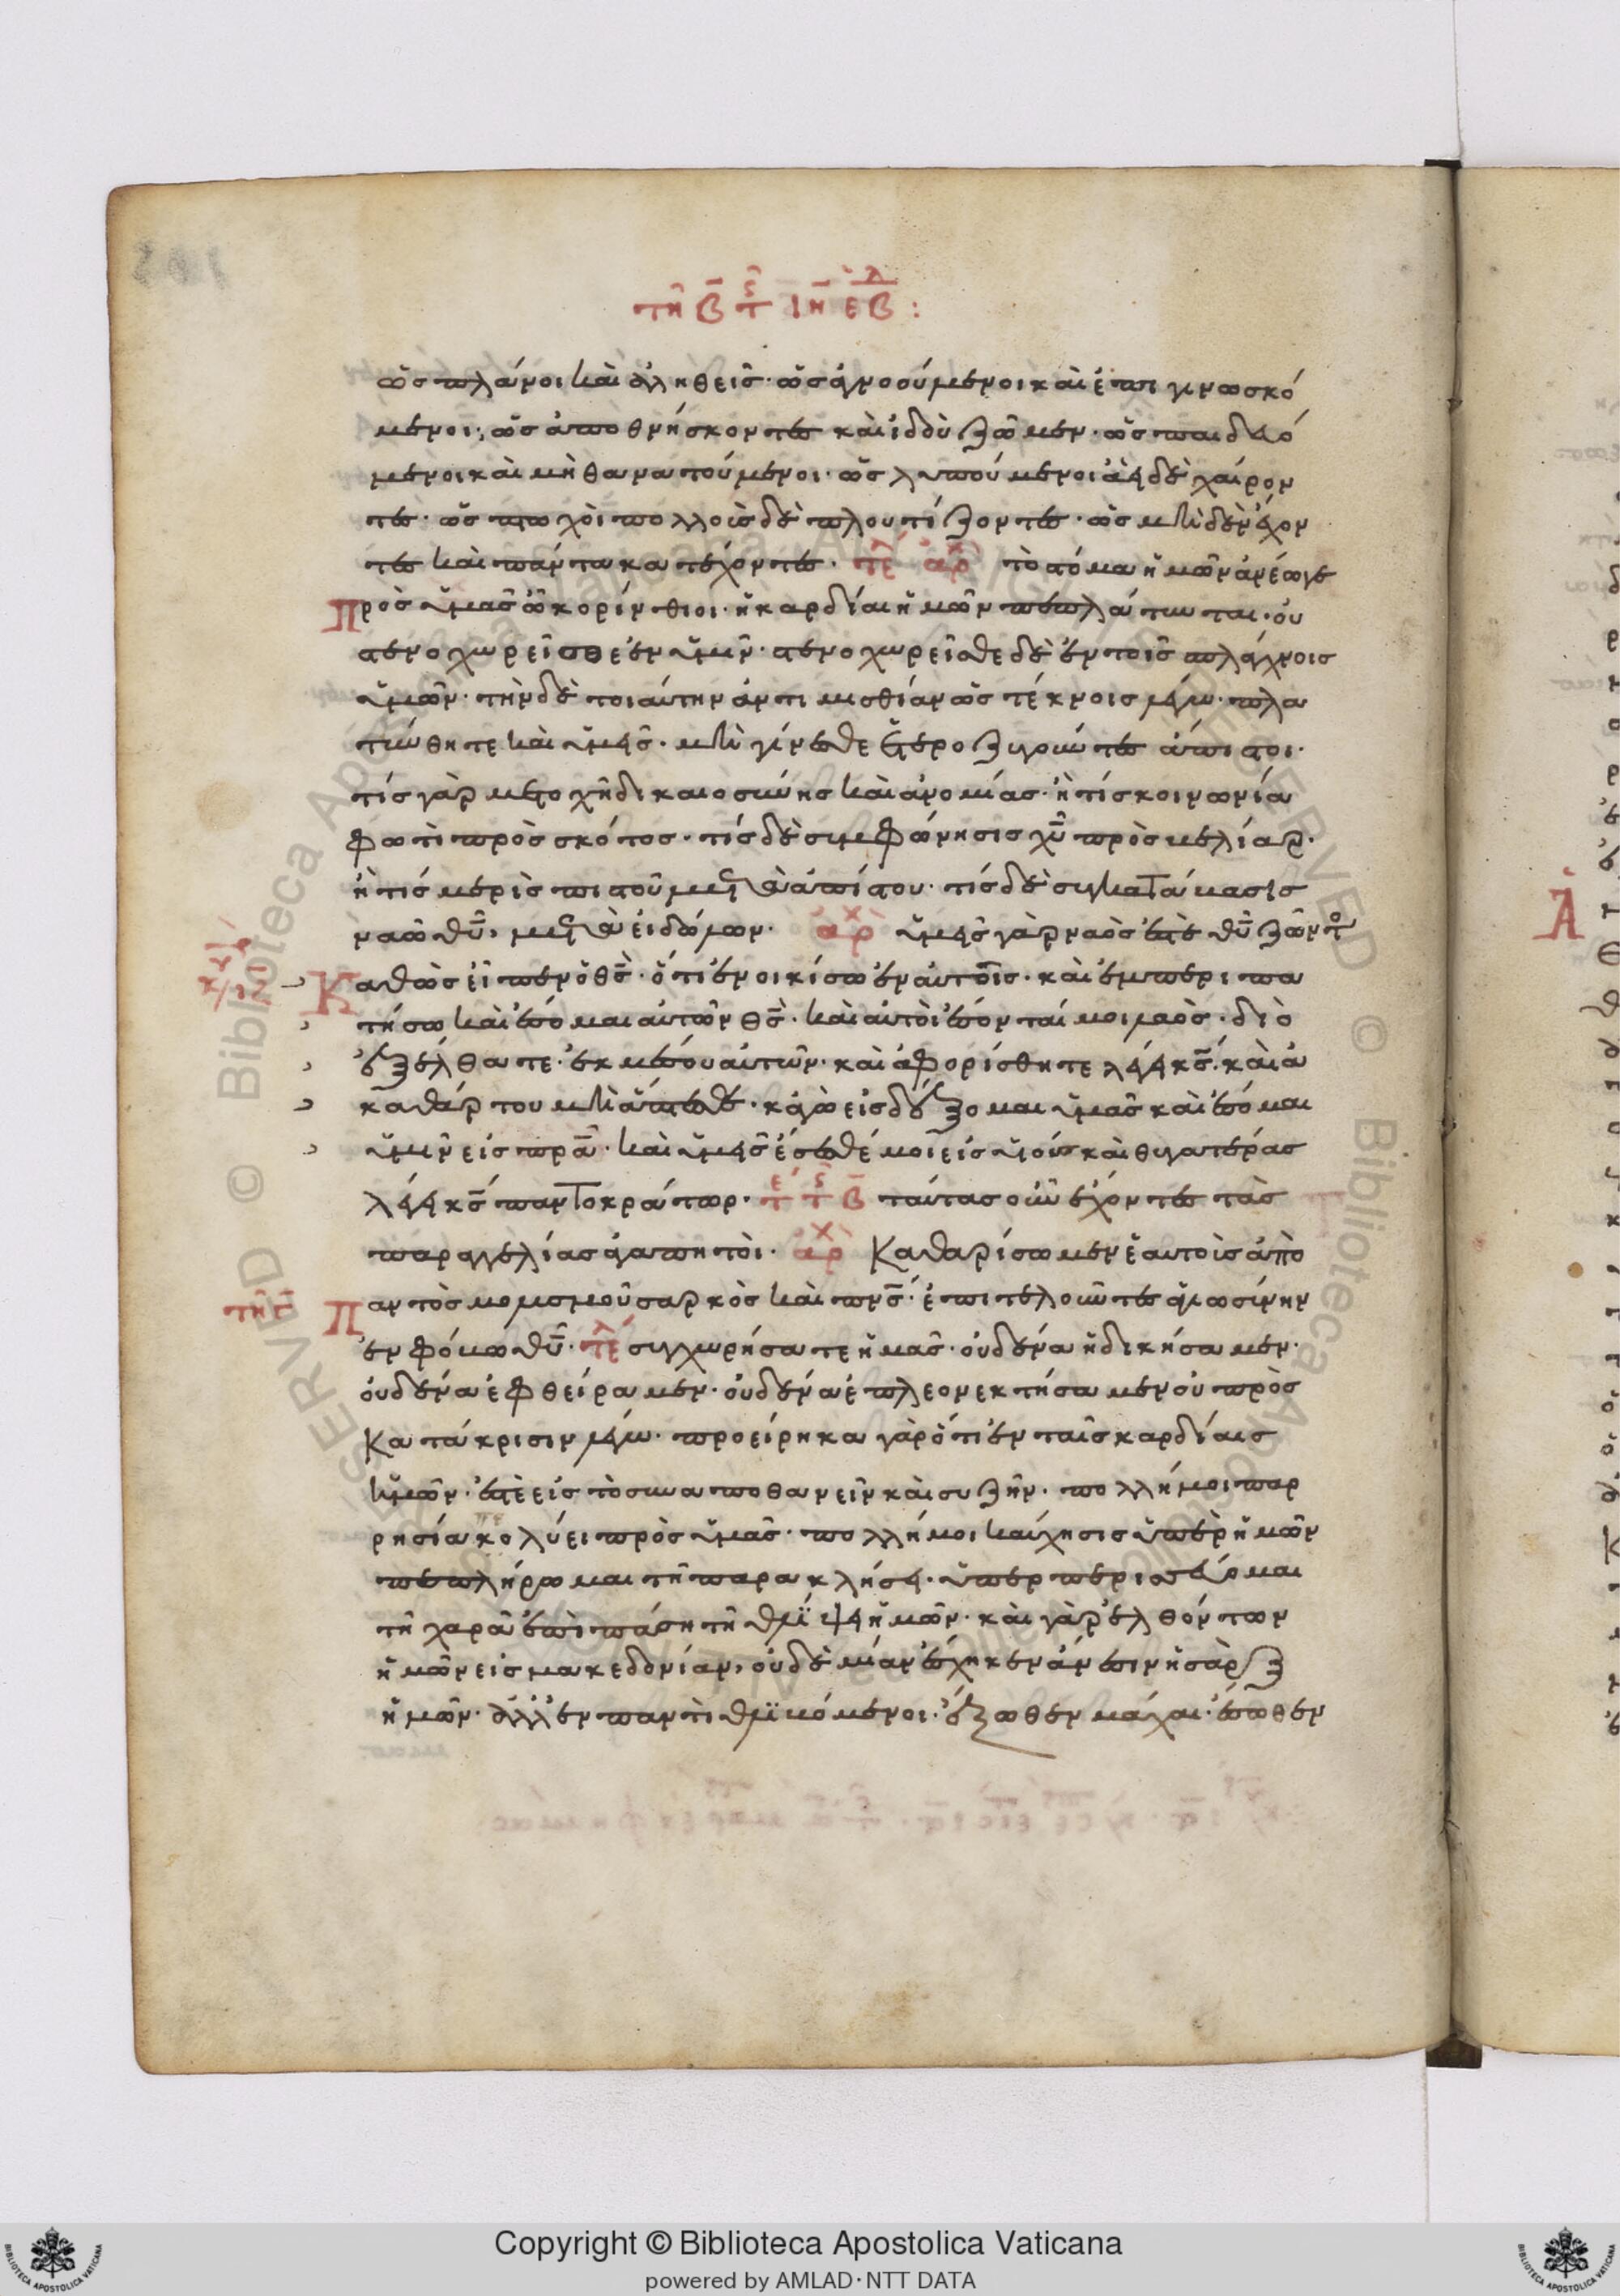 τῇ β̅ τ ς ιη εβδ :
ὡς πλάνοι καὶ ἀληθεῖς· ὡς ἀγνοούμενοι καὶ ἐπιγινωσκό
μενοι· ὡς ἀποθνήσκοντες καὶ ἰδοὺ ζῶμεν· ὡς παιδευό
μενοι καὶ μὴ θανατούμενοι· ὡς λυπούμενοι ἀεὶ δὲ χαίρον
τες· ὡς πτωχοὶ πολλοὺς δὲ πλουτίζοντες· ὡς μηδὲν ἔχον
τες καὶ πάντα κατέχοντες· τελ αρχ τὸ στόμα ἡμῶν ἀνέωγε
Πρὸς ὑμᾶς ὦ κορίνθιοι· ἡ καρδία ἡμῶν πεπλάτυνται· οὐ
στενοχωρεῖσθε ἐν ὑμῖν· στενοχωρεῖσθε δὲ ἐν τοῖς σπλάχνοις
ὑμῶν· τὴν δὲ τοιαύτην ἀντιμισθίαν ὡς τέκνοις λέγω· πλα
τύνθητε καὶ ὑμεῖς· μὴ γίνεσθε ἑτεροζυγοῦντες ἀπίστοι·
τίς γὰρ μετοχὴ δικαιοσύνης καὶ ἀνομίας· ἢ τίς κοινωνία
φωτὶ πρὸς σκότος· τίς δὲ συμφώνησις χῦ πρὸς βελίαρ·
ἢ τίς μερὶς πιστοῦ μετὰ ἀπίστου· τίς δὲ συγκατάβασις
ναῶ θῦ, μετὰ εἰδώλων· αρχ ὑμεῖς γὰρ ναὸς ἐστὲ θῦ ζῶντο
Καθὼς εἶπεν ὁ θς· ὅτι ἐνοικίσω ἐν αὐτοῖς· καὶ ἐμπεριπα
τήσω καὶ ἔσομαι αὐτῶν θς· καὶ αὐτοὶ ἔσονταί μοι λαὸς· διὸ
ἐξέλθατε ἐκ μέσου αὐτῶν· καὶ ἀφορίσθητε λέγει κς· καὶ ἀ
καθάρτου μὴ ἅπτεσθε· κἀγὼ εἰσδέξομαι ὑμᾶς καὶ ἔσομαι
ὑμῖν εἰς πρα· καὶ ὑμεῖς ἔσεσθέ μοι εἰς υἱοὺς καὶ θυγατέρας
λέγει κς παντοκράτωρ· τ ε τ ς β̅ ταύτας οὖν ἔχοντες τὰς
παραγγελίας ἀγαπητοὶ· αρχ Καθαρίσωμεν ἑαυτοὺς ἀπὸ
τῇ γ̅ Παντὸς μολυσμοῦ σαρκὸς καὶ πνς· ἐπιτελοῦντες ἁγιωσύνην
ἐν φόβω θῦ· τελ συγχωρήσατε ἡμᾶς· οὐδένα ἠδικήσαμεν·
οὐδένα ἐφθείραμεν· οὐδένα ἐπλεονεκτήσαμεν οὐ πρὸς
Κατάκρισιν λέγω· προείρηκα γὰρ ὅτι ἐν ταῖς καρδίαις
ὑμῶν· ἐστὲ εἰς τὸ συναποθανεῖν καὶ συζῆν· πολλή μοι παρ
ρησία κολύει πρὸς ὑμᾶς· πολλή μοι καύχησις ὑπὲρ ἡμῶν
πεπλήρωμαι τῇ παρακλήσει· ὑπερπερισσεύομαι
τῇ χαρᾶ ἐπὶ πάσῃ τῇ θλίψει ἡμῶν· καὶ γὰρ ἐλθόντων
ἡμῶν εἰς μακεδονίαν, οὐδὲ μίαν ἔσχηκεν ἄνεσιν ἡ σὰρξ
ἡμῶν· ἀλλ' ἐν παντὶ θλιβόμενοι· ἔξωθεν μάχαι· ἔσωθεν
Copyright © Biblioteca Apostolica Vaticana
powered by AMLAD·NTT DATA